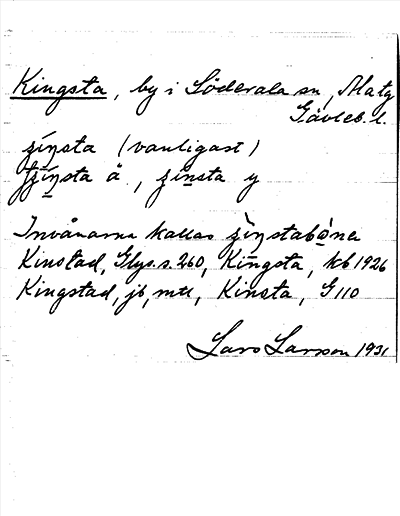 Kingsta, by i Söderala sn, Ala tg
Gävleb. l.
şiŋsta (vanligast)
ʃşiŋsta ä, şinsta y
Invånarna kallas şiŋstabǫnar
Kinstad, Glys. s. 260, Kingsta, kb 1926
Kingstad, jb, mtl, Kinsta, G 110
Lars Larson 1931